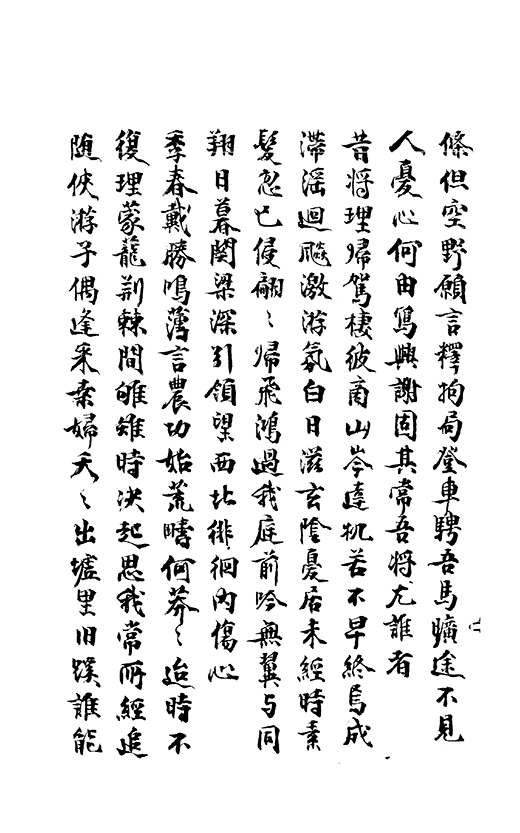 條但空野願言釋拘局登車騁吾馬曠途不見
人憂心何由寫興謝固其常吾將尤誰者
昔將理歸駕棲彼商山岑達机若不早終焉成
滯淫迴飈激游氛白日滋玄陰憂居未經時素
髮忽已侵翩〻歸飛鴻過我庭前吟無翼与同
翔日暮関梁深引領望西北徘徊内傷心
季春戴勝鳴薄言農功始荒疇何莽〻迨時不
復理蒙蘢荆棘間雊雉時決起思我常所經追
随俠游子偶逢采桑婦夭〻出墟里旧蹊誰能